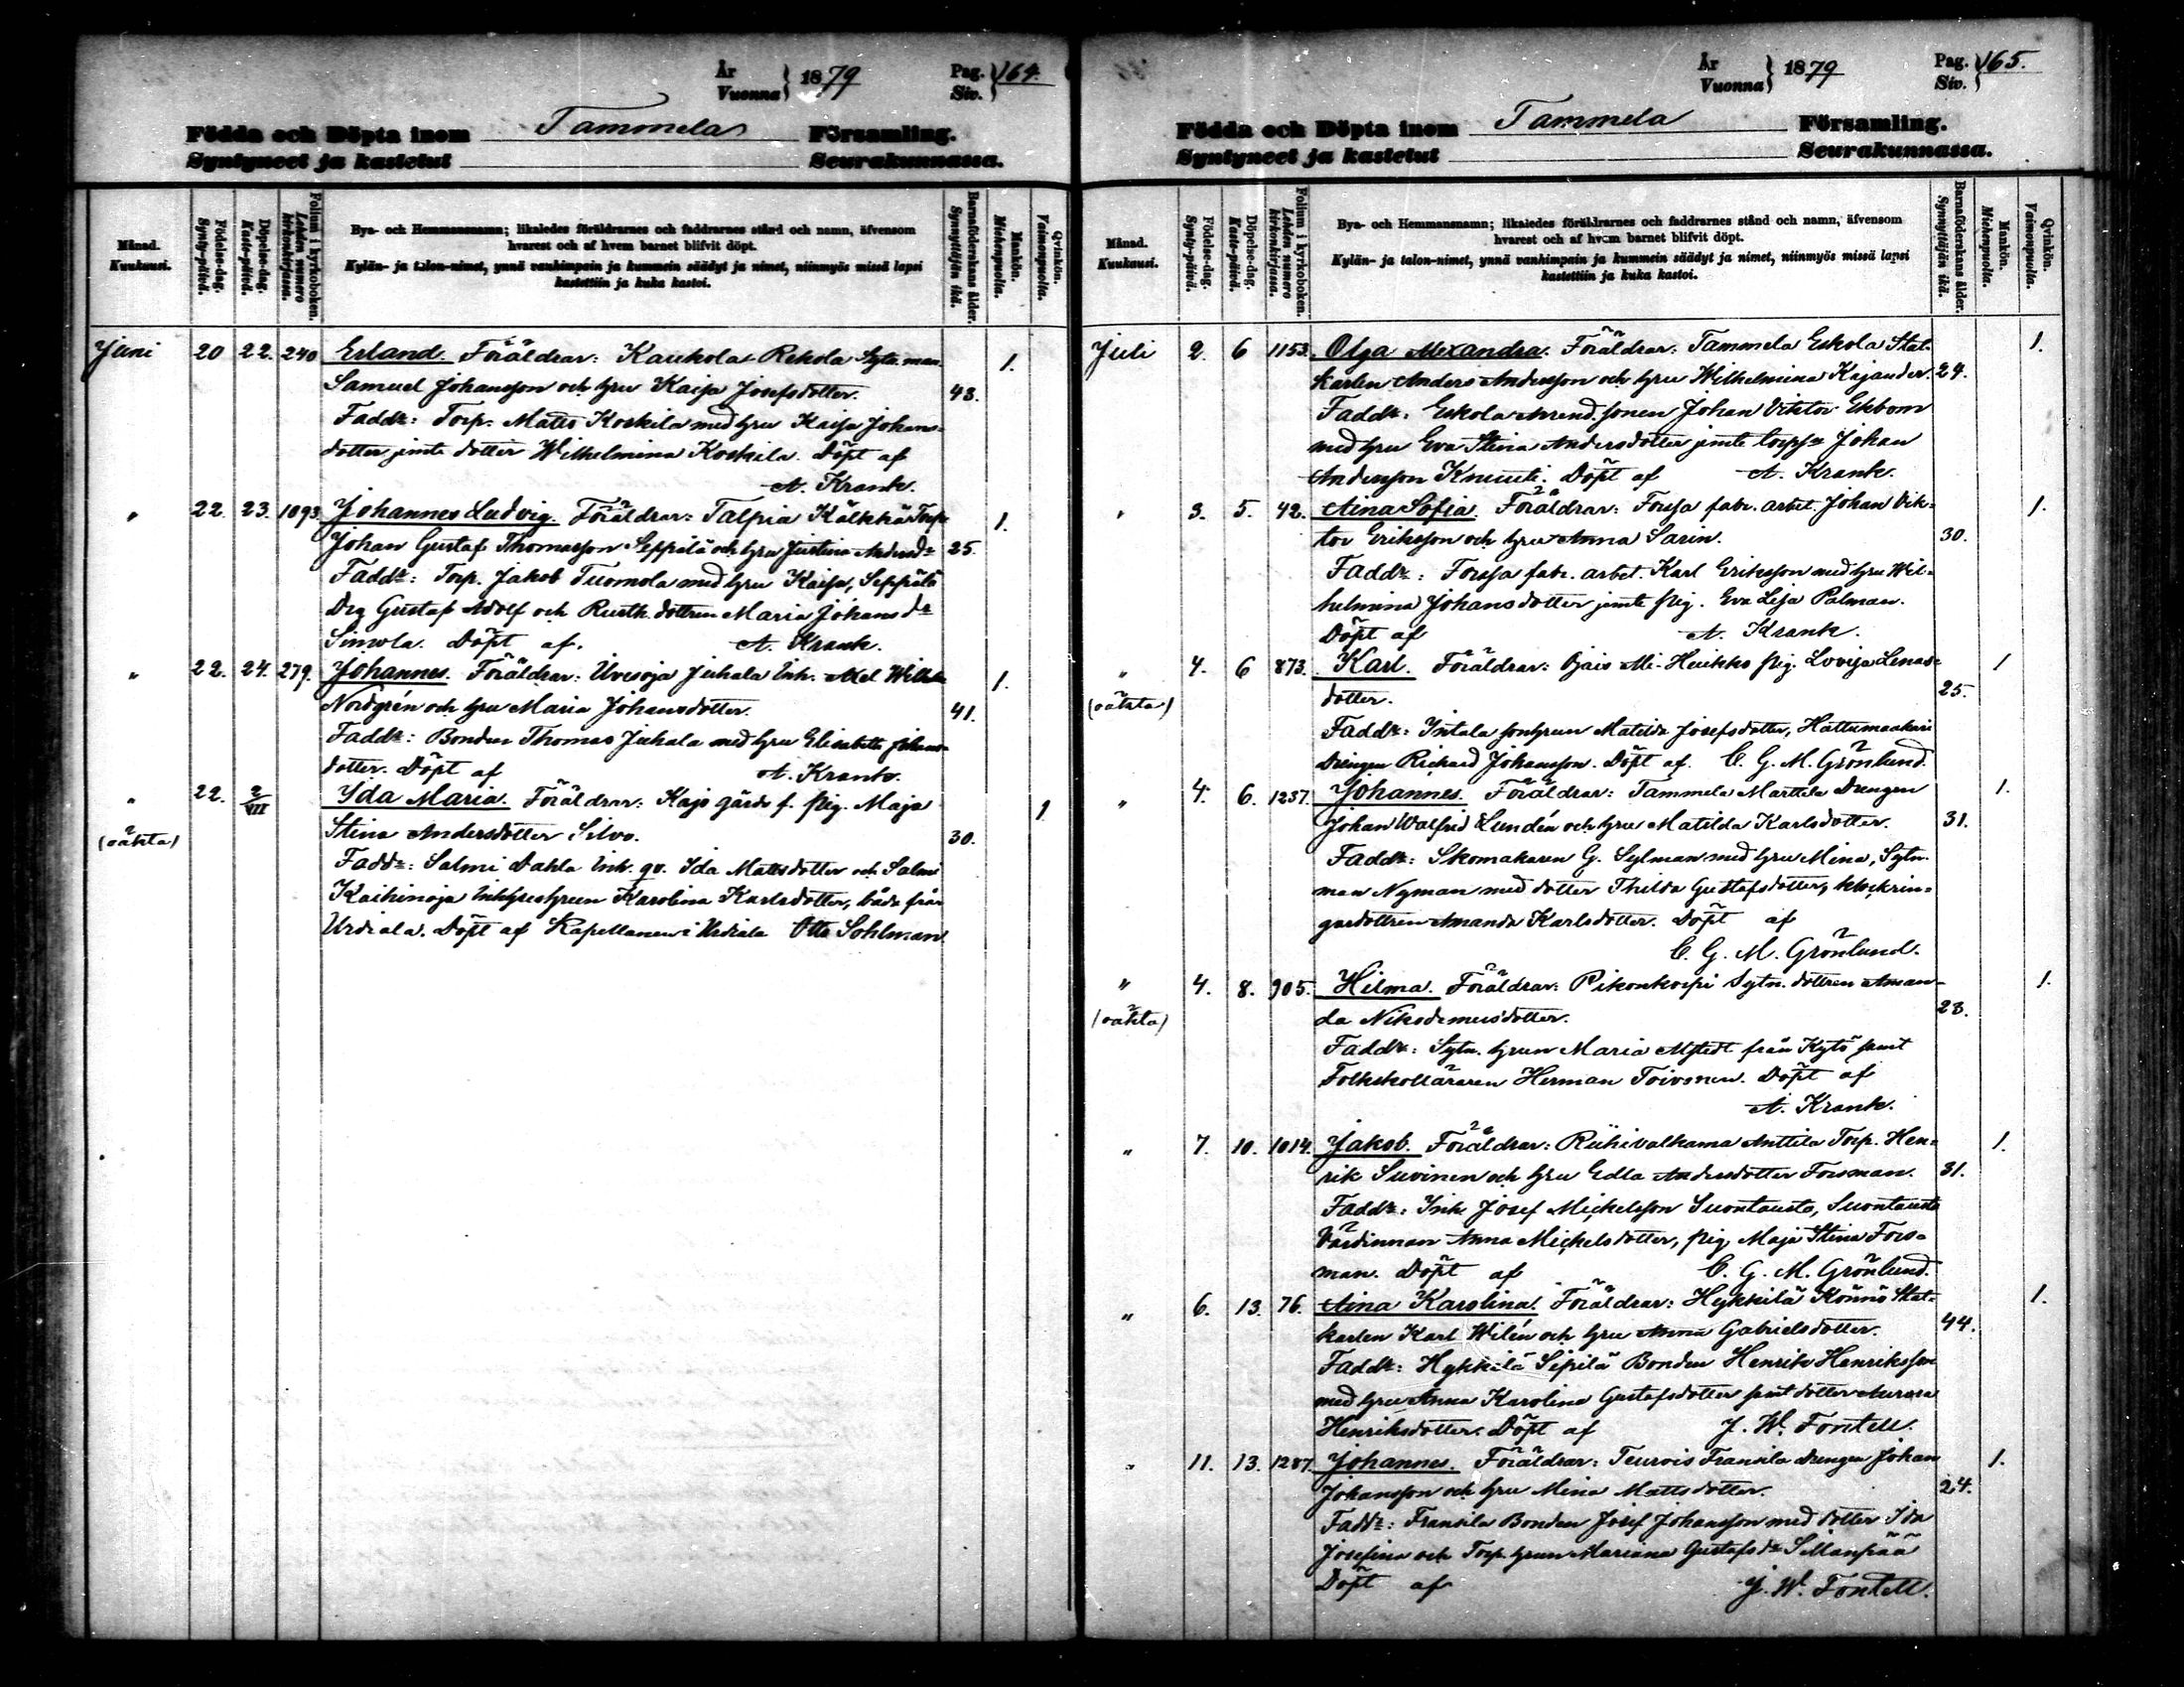 År
Vuonna } 1879
Pag.
Siv. } 164.
Födda och Döpta inom Tammela Församling.
Syntyneet ja kastetut Seurakunnassa.
Månad.
Kuukausi.
Födelse-dag.
Synty-päivä.
Döpelse-dag.
Kaste-päivä.
Folium i kyrkoboken.
Lehden numero kirkonkirjassa.
Bya- och Hemmansnamn; likaledes föräldrarnes och faddrarnes stånd och namn, äfvensom
hvarest och af hvem barnet blifvit döpt.
Kylän- ja talon-nimet, ynnä vanhimpain ja kummein säädyt ja nimet, niinmyös missä lapsi
kastettiin ja kuka kastoi.
Barnaföderskans ålder.
Synnyttäjän ikä.
Mankön.
Miehenpuolia.
Qvinkön.
Vaimonpuolia.
Juni 20 22. 240 Erland. Föräldrar: Kaukola Rekola Sytn. man. 1.
Samuel Johansson och hru Kaisa Josefsdotter. 43.
Faddr: Torp. Matts Koskila med hru Kaisa Johans-
dotter jmte dotter Wilhelmina Koskila. Döpt af
A. Krank.
" 22. 23. 1093 Johannes Ludvig. Föräldrar: Talpia Kälkkä Torp. 1.
Johan Gustaf Thomasson Seppälä och hru Justina Andersdr 25.
Faddr: Torp. Jakob Tuomola med hru Kaisa, Seppälä
Drg Gustaf Adolf och Rusth. dottren Maria Johansdr
Simola. Döpt af. A. Krank.
" 22. 24. 279. Johannes. Föräldrar: Urvesoja Juhala Inh. 1.
Nordgrén och hru Maria Johansdotter. 41.
Faddr: Bonden Thomas Juhala med hru Elisabeth Johans-
dotter. Döpt af A. Krank.
" 22. 2/VII Ida Maria. Föräldrar: Kojo gårds f. pig. Maja 1
(oäkta) Stina Andersdotter Silvo. 30.
Faddr: Salmi Dahla Inh. qv. Ida Mattsdotter och Salmi
Karolina Karlsdotter, båda från
Urdiala. Döpt af Kapellanen i Urdiala Otto Sohlman.
År
Vuonna } 1879
Pag.
Siv. } 165.
Födda och Döpta inom Tammela Församling.
Syntyneet ja kastetut Seurakunnassa.
Månad.
Kuukausi.
Födelse-dag.
Synty-päivä.
Döpelse-dag.
Kaste-päivä.
Folium i kyrkoboken.
Lehden numero kirkonkirjassa.
Bya- och Hemmansnamn; likaledes föräldrarnes och faddrarnes stånd och namn, äfvensom
hvarest och af hvem barnet blifvit döpt.
Kylän- ja talon-nimet, ynnä vanhimpain ja kummein säädyt ja nimet, niinmyös missä lapsi
kastettiin ja kuka kastoi.
Barnaföderskans ålder.
Synnyttäjän ikä.
Mankön.
Miehenpuolia.
Qvinkön.
Vaimonpuolia.
Juli 2. 6 1153. Olga Alexandra. Föräldrar: Tammela Eskola Stat- 1.
karlen Anders Andersson och hru Wilhelmina Kajander. 24.
Faddr: Eskola Arrend. sonen Johan Viktor Ekbom
med hru Eva Stina Andersdotter jmte torps. Johan
Andersson Knuuti. Döpt af A. Krank.
" 3. 5. 42. Aina Sofia. Föräldrar: Forssa fabr. arbet. Johan Vik- 1.
tor Eriksson och hru Anna Sarin. 30.
Faddr: Forssa fabr. arbet. Karl Eriksson med hru Wil-
helmina Johansdotter jemte pig. Eva Lisa Palman.
Döpt af A. Krank.
" 4. 6 873. Karl. Föräldrar: Ojais Ali-Heikko pig. Lovisa Lenas- 1
(oäkta) dotter. 25.
Faddr: Intala sonhrun Matilda Josefsdotter,
Drengen Richard Johansson. Döpt af. C. G. M. Grönlund.
" 4. 6. 1237. Johannes. Föräldrar: Tammela Marttila Drengen 1.
Johan Walfrid Lundén och hru Matilda Karlsdotter. 31.
Faddr: Skomakaren G. Sylman med hru Mina, Sytn.
man Nyman med dotter Thilda Gustafsdotter, klockrin-
garedottren Amanda Karlsdotter. Döpt af
C. G. M. Grönlund.
" 4. 8. 905. Hilma. Föräldrar: Pikonkorpi Sytn. dottren Aman- 1.
(oäkta) da Nikodemusdotter. 23.
Faddr: Sytn. hrun Maria Alstedt från Kytö samt
Folkskolläraren Herman Toivonen. Döpt af
A. Krank.
" 7. 10. 1014. Jakob. Föräldrar: Riihivalkama Anttila Torp. Hen- 1.
rik Suvinen och hru Edla Andersdotter Forsman. 31.
Faddr: Inh. Josef Mickelsson Suontausta, Suontausta
Värdinnan Anna Mickelsdotter, pig. Maja Stina Fors-
man. Döpt af C. G. M. Grönlund.
" 6. 13. 76. Aina Karolina. Föräldrar: Hykkilä Könnö Stat- 1.
karlen Karl Wilén och hru Anna Gabrielsdotter. 44.
Faddr: Hykkilä Sipilä Bonden Henrik Henriksson
med hru Anna Karolina Gustafsdotter samt dotter Aurora
Henriksdotter. Döpt af J. W. Fontell.
" 11. 13. 1287. Johannes. Föräldrar: Teurois Fransila Drengen Johan 1.
Johansson och hru Mina Mattsdotter. 24.
Faddr: Fransila Bonden Josef Johansson med dotter Ida
Josefina och Torp. hrun Mariana Gustafsdr Sillanpää
Döpt af J. W. Fontell.